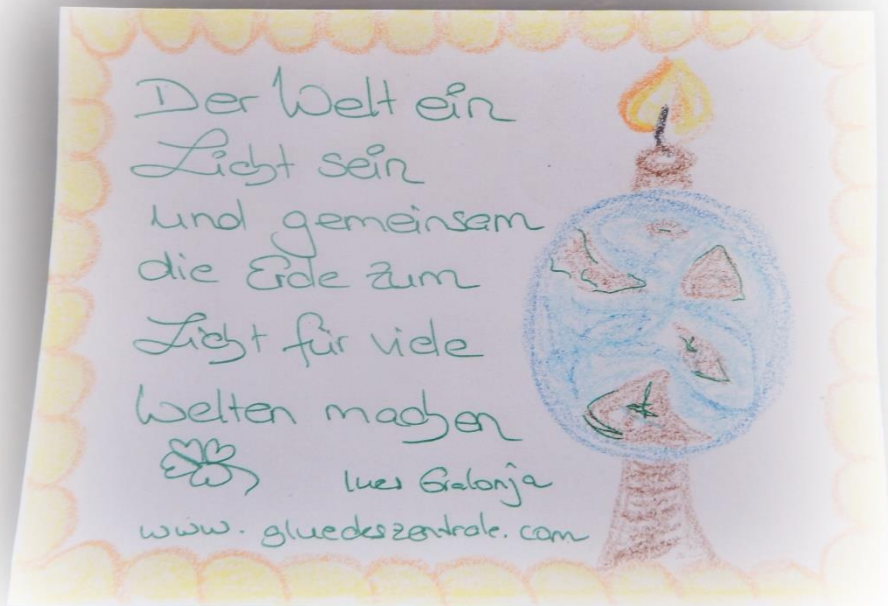 Der Welt ein
Licht sein
und gemeinsam
die Erde zum
Licht für viele
Welten machen
www.glueckszentrale.com